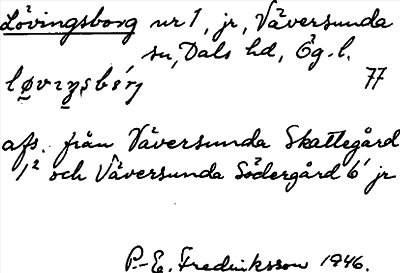 Lövingsborg nr 1, jr, Väversunda
sn, Dals hd, Ög. l.
77
afs. från Väversunda Skattegård
1² och Väversunda Södergård 6¹ jr
P.-E. Fredriksson 1946.